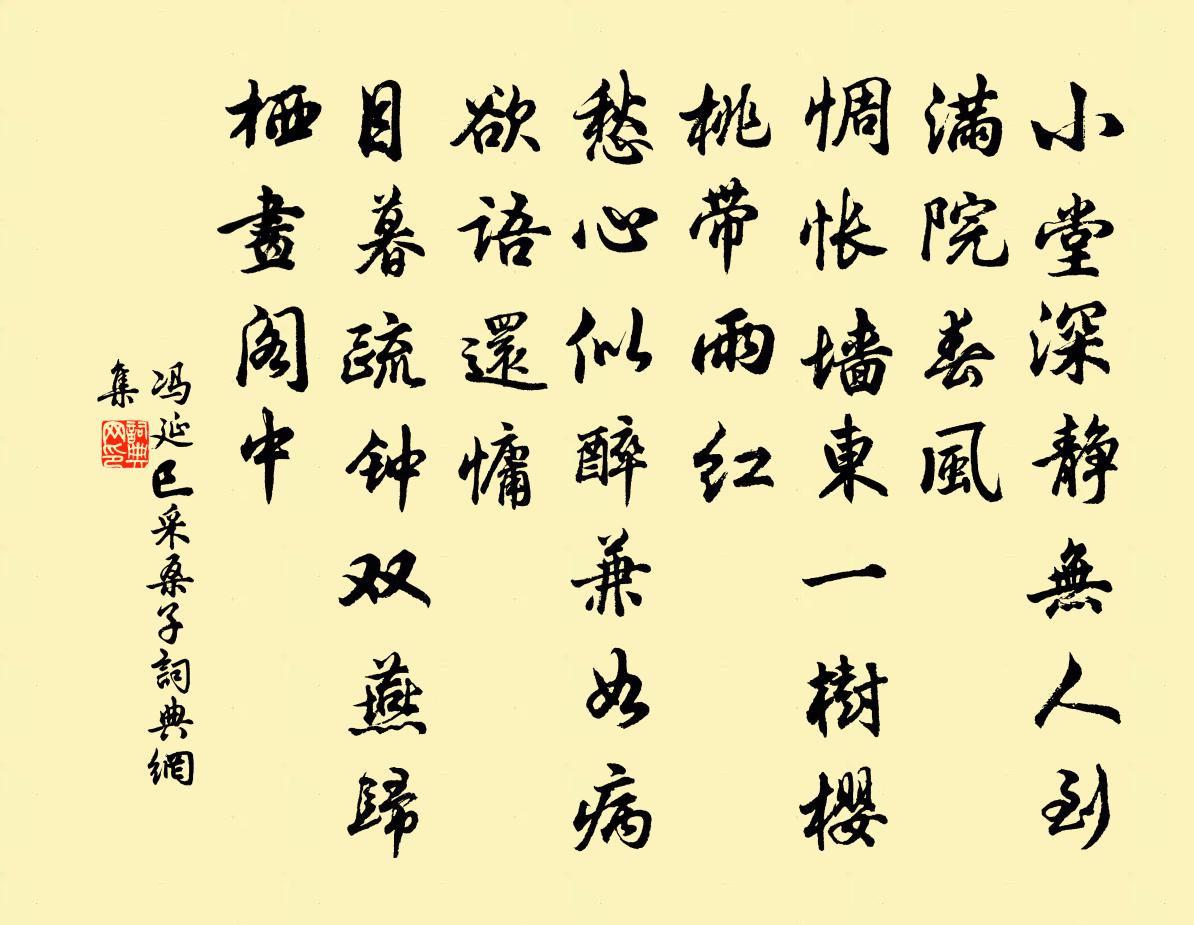 小堂深静無人到
满院春風
惆怅墙東一樹櫻
桃带雨红
愁心似醉兼如病
欲语還慵
目暮疏钟双燕歸
栖畫阁中
冯延巳采桑子詞典網
集
詞典
网印